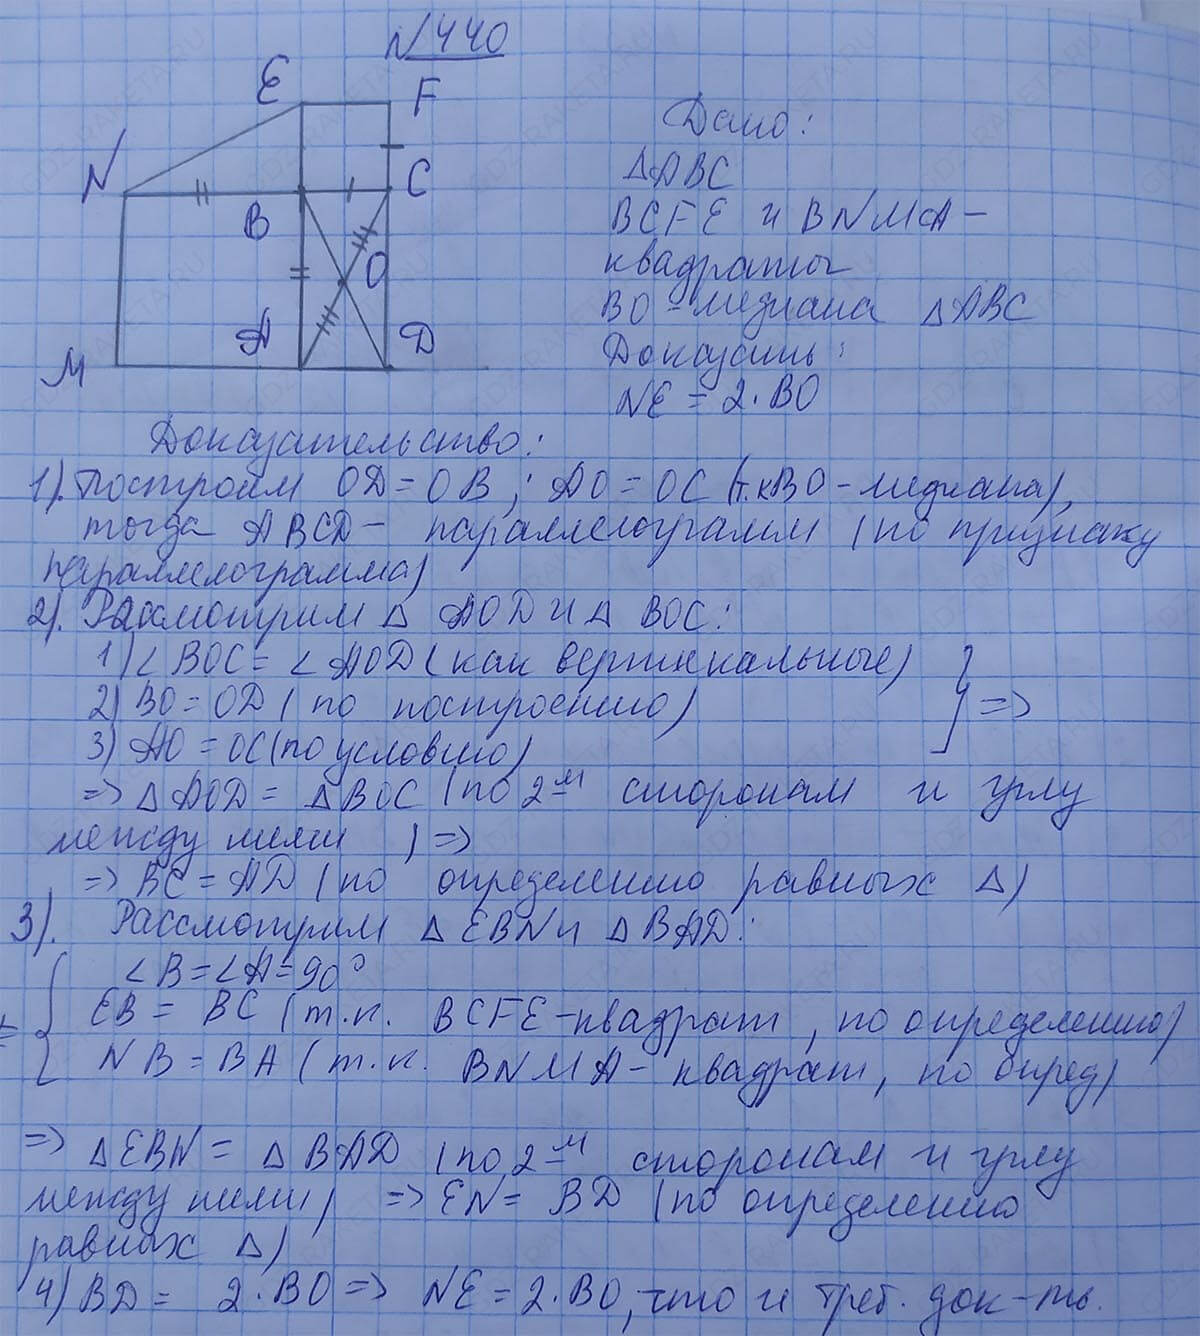 N440
E
F
N
C
B
O
A
D
M
Дано:
△ABC
BCFE и BNMA –
квадраты
BO – медиана △ABC
Доказать:
NE = 2·BO
Доказательство:
1). Построим OD = OB ; AO = OC (т.к BO – медиана),
тогда ABCD – параллелограмм (по признаку
параллелограмма)
2). Рассмотрим △ AOD и △ BOC:
1) ∠BOC = ∠AOD (как вертикальные)
2) BO = OD (по построению) } =>
3) AO = OC (по условию)
=> △AOD = △BOC (по 2м сторонам и углу
между ними ) =>
=> BC = AD (по определению равных △)
3). Рассмотрим △EBN и △BAD:
∠B = ∠A = 90°
EB = BC (т.к. BCFE – квадрат, по определению)
NB = BA (т.к. BNMA – квадрат, по опред)
=> △EBN = △BAD (по 2м сторонам и углу
между ними) => EN = BD (по определению
равных △)
4) BD = 2·BO => NE = 2·BO, что и треб. док-ть.